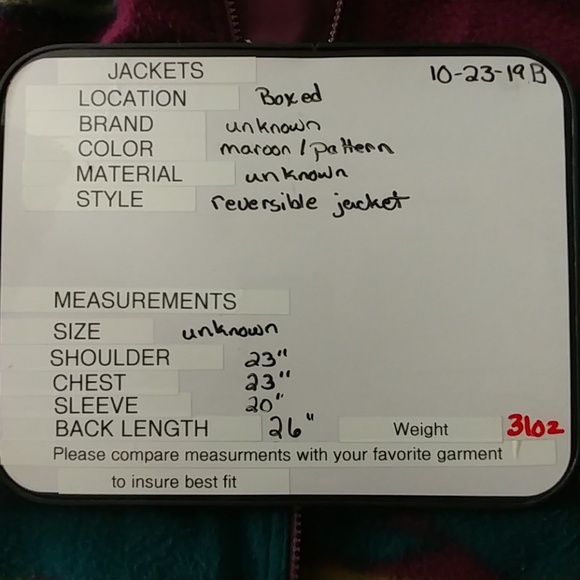 JACKETS 10-23-19B
LOCATION Boxed
BRAND unknown
COLOR maroon/pattern
MATERIAL unknown
STYLE reversible jacket
MEASUREMENTS
SIZE unknown
SHOULDER 23"
CHEST 23"
SLEEVE 20"
BACK LENGTH 26" Weight 31oz
Please compare measurments with your favorite garment
to insure best fit